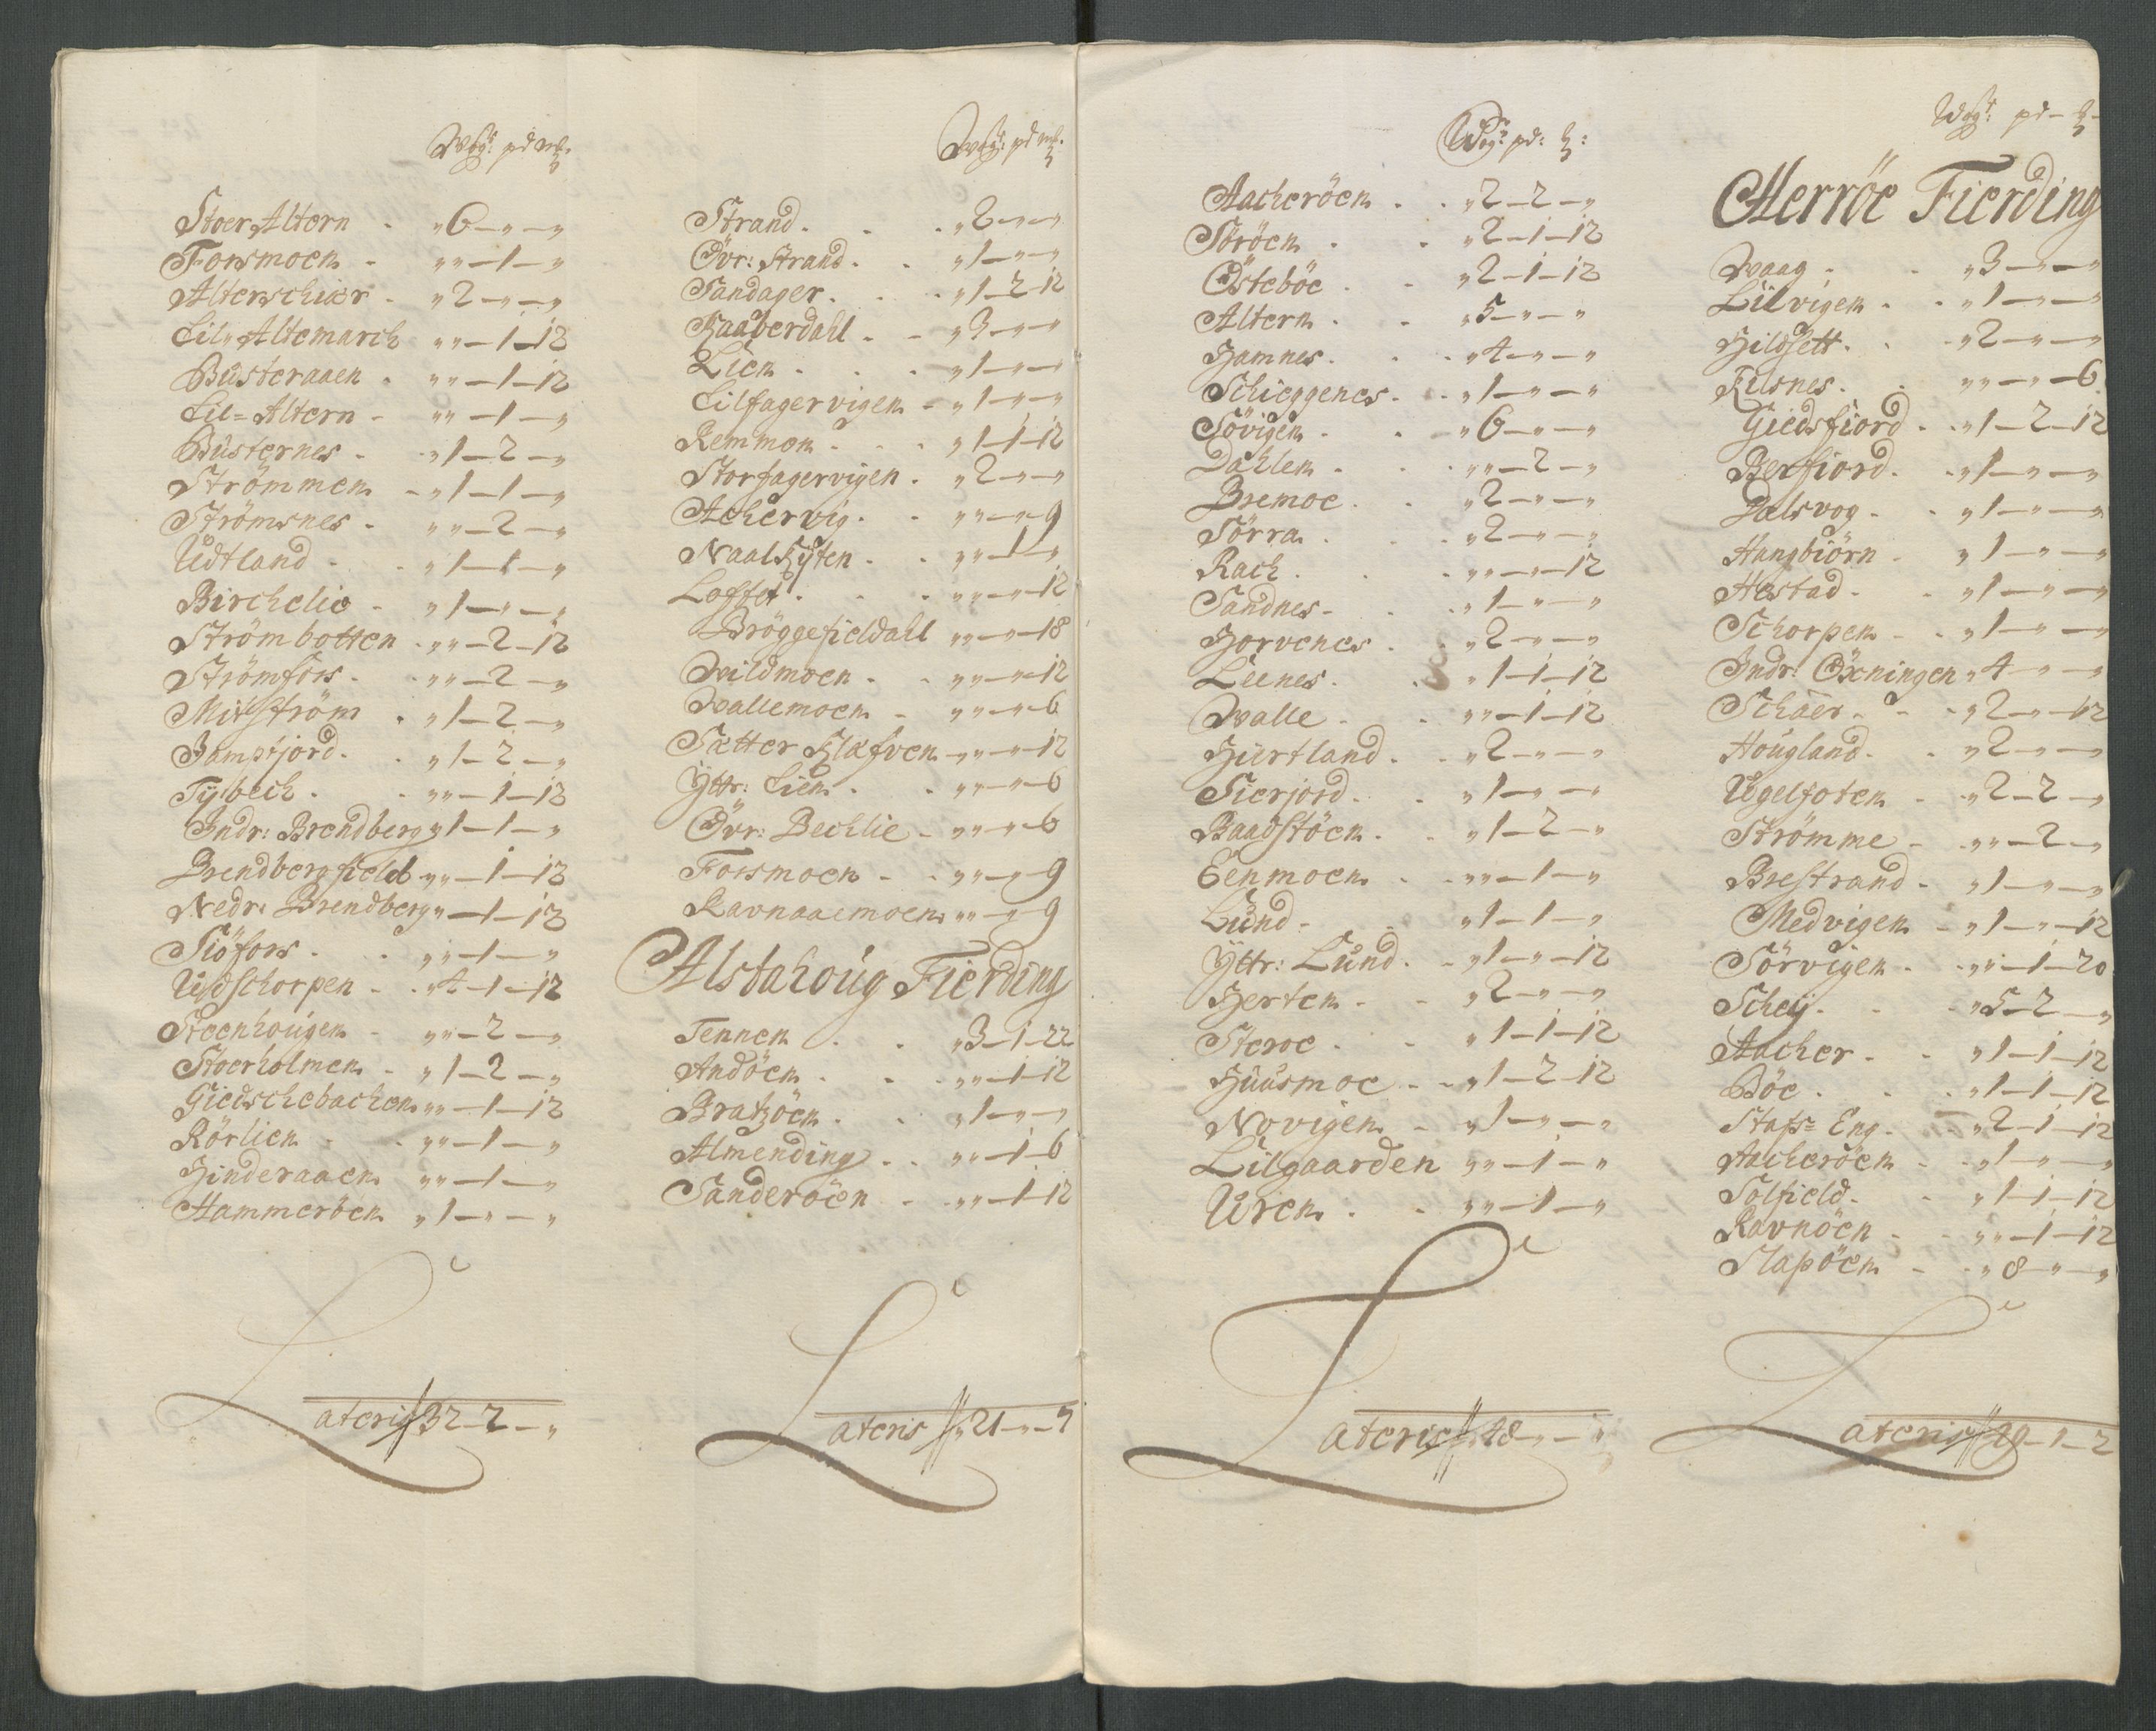 Wog: pd mk:
Stoer Altern - „6 - „ - „
Forsmoen - „ „ - 1 - „
Alterschiær - „2 - „ - „
Lil„ Altemarch „ „ - 1 - 12
Bústeraaen - „ „ - 1 - 12
Lil= Altern - „ „ - 1 - „
Bústernes - „1 - 2 - „
Strömmen - „1 - 1 - „
Strömsnes - „ „ - 2 - „
Údtland - „1 - 1 - „
Birchelie - „1 - „ - „
Strömbotten - „ „ - 2 - 12
Strömfors - „ „ - 2 - „
Mitström - „1 - 2 - „
Jamtjord - „1 - 2 - „
Tÿbech - „ „ - 1 - 12
Indr: Brendberg „1 - 1 - „
Brendbergfield „ „ - 1 - 12
Nedr: Brendberg „ „ - 1 - 12
Siöfors - „ „ - 1 - „
Údschorpen - „4 - 1 - 12
Steenhoúgen - „ „ - 2 - „
Stoerholmen - „1 - 2 - „
Giedschebachen „ „ - 1 - 12
Rörlien - „ „ - 1 - „
Hinderaaen „ „ - 1 - „
Hammeröen „1 - „ - „
Lateris 32 - 2 - „
Wog: pd mk:
Strand - „2 - „ - „
Övr: Strand - „1 - „ - „
Sandager - „1 - 2 - 12
Raaberdahl - „3 - „ - „
Lien - „1 - „ - „
Lilfagervigen - „1 - „ - „
Remmon - „1 - 1 - 12
Storfagervigen - „2 - „ - „
Achervig - „ „ - „ - 9
Naalsÿten - „ „ - 1 - „
Loffet - „ „ - „ - 12
Bröggefieldahl „ „ - „ - 18
Wildmoen - „ „ - „ - 12
Wallemoen - „ „ - „ - 6
Sætter Klæfven „ „ - „ - 12
Ÿttr: Lien - „ „ - „ - 6
Övr: Bechlie - „ „ - „ - 6
Forsmoen - „ „ - „ - 9
Ravnaaemoen „ „ - „ - 9
Alstahoúg Fierding
Tennen - „3 - 1 - 22
Andöen - „ „ - 1 - 12
Bratzöen - „1 - „ - „
Almending - „ „ - 1 - 6
Sanderöen - „ „ - 1 - 12
Lateris „21 - „ - 7
Wog: pd:
Aacheröen - „2 - 2 - „
Söröen - „2 - 1 - 12
Östeböe - „2 - 1 - 12
Altern - „5 - „ - „
Hamnes - „4 - „ - „
Schieggenes - „1 - „ - „
Sövigen - „6 - „ - „
Dahlen - „ „ - 2 - „
Bremoe - „2 - „ - „
Sörra - „2 - „ - „
Rach - „ „ - „ - 12
Sandnes - „1 - „ - „
Horvenes - „2 - „ - „
Leenes - „1 - 1 - 12
Walle - „ „ - 1 - 12
Hiertland - „2 - „ - „
Sierjord - „1 - „ - „
Baadstöen - „1 - 2 - „
Eenmoen - „ „ - 1 - „
Lúnd - „1 - 1 - „
Ÿttr: Lúnd - „1 - „ - 12
Herten - „2 - „ - „
Steroe - „1 - 1 - 12
Húúsmoe - „1 - 2 - 12
Novigen - „1 - „ - „
Lilgaarden „ „ - 1 - „
Úren - „ „ - 1 - „
Lateris 48 - „ - „
Wog: pd -
Herröe Fierding
Waag - „3 - „ - „
Lilvigen - „1 - „ - „
Hildsett - „2 - „ - „
Kilsnes - „ „ - „ - 6
Giedsfiord - „1 - 2 - 12
Berfiord - „1 - „ - „
Dalsvog - „1 - „ - „
Hangbiörn - „1 - „ - „
Hestad - „1 - „ - „
Schorpen - „1 - „ - „
Indr: Öxningen „4 - „ - „
Schäer - „2 - „ - 12
Hoúgland - „2 - „ - „
Úgelfoten - „2 - 2 - „
Strömme - „ „ - 2 - „
Brestrand - „1 - „ - „
Medvigen - „1 - „ - 12
Sörvigen - „ „ - 1 - 20
Scheÿ - „5 - 2 - „
Aacher - „1 - 1 - 12
Böe - „1 - 1 - 12
Stafs= Eng - „2 - 1 - 12
Aacheröen - „1 - „ - „
Solfield - „1 - 1 - 12
Ravnöen - „ „ - 1 - 12
Slapöen - „8 - „ - „
Lateris - 1 - 2